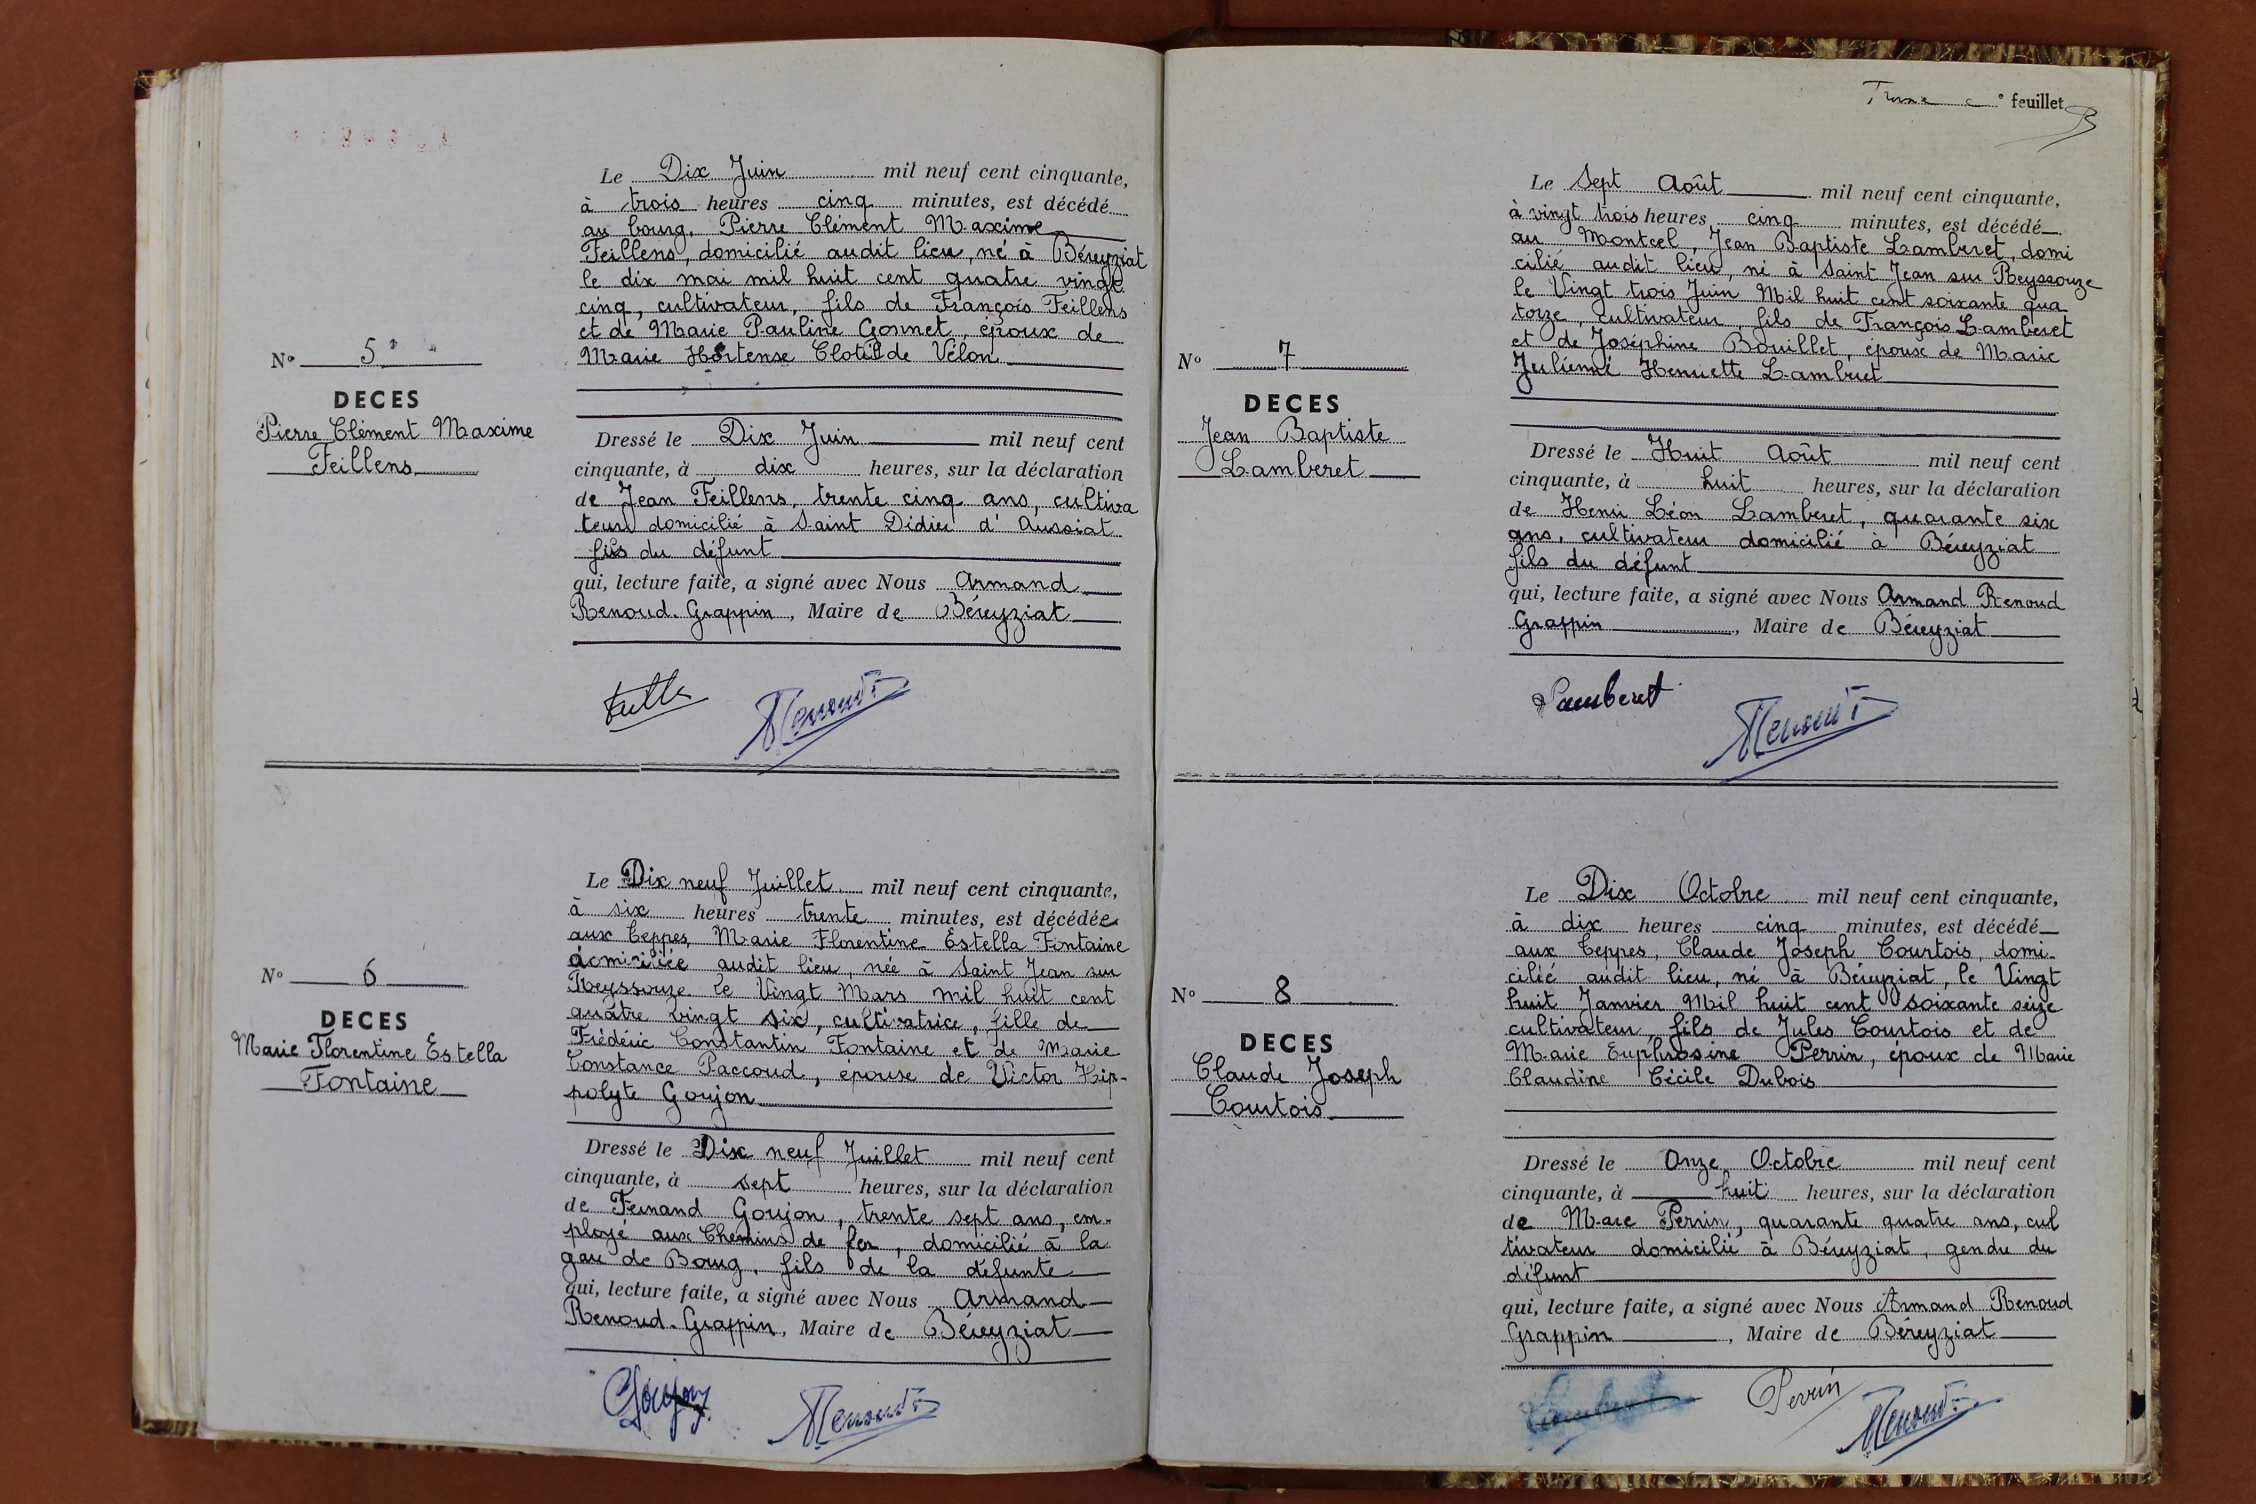 Le Dix Juin mil neuf cent cinquante,
à trois heures cinq minutes, est décédé
au bourg, Pierre Clément Maxime
Feillens, domicilié audit lieu, né à Béreyziat
le dix mai mil huit cent quatre vingt
cinq, cultivateur, fils de François Feillens
et de Marie Pauline Gonnet, époux de
Marie Hortense Clotilde Vélon
N° 5
DECES
Pierre Clément Maxime
Feillens
Dressé le Dix Juin mil neuf cent
cinquante, à dix heures, sur la déclaration
de Jean Feillens, trente cinq ans, cultiva
teur domicilié à Saint Didier d'Aussiat
fils du défunt
qui, lecture faite, a signé avec Nous Armand
Renoud-Grappin, Maire de Béreyziat
Renoud
Le Dix neuf Juillet mil neuf cent cinquante,
à six heures trente minutes, est décédée
aux Teppes, Marie Florentine Estella Fontaine
domiciliée audit lieu, née à Saint Jean sur
Reyssouze le Vingt Mars mil huit cent
quatre vingt six, cultivatrice, fille de
Frédéric Constantin Fontaine et de Marie
Constance Paccoud, épouse de Victor Hip-
polyte Goujon
N° 6
DECES
Marie Florentine Estella
Fontaine
Dressé le Dix neuf Juillet mil neuf cent
cinquante, à sept heures, sur la déclaration
de Fernand Goujon, trente sept ans, em-
ployé aux Chemins de fer, domicilié à la
gare de Bourg, fils de la défunte
qui, lecture faite, a signé avec Nous Armand
Renoud-Grappin, Maire de Béreyziat
Goujon Renoud
feuillet
Le Sept Août mil neuf cent cinquante,
à vingt trois heures cinq minutes, est décédé
au Montcel, Jean Baptiste Lamberet, domi
cilié audit lieu, né à Saint Jean sur Reyssouze
le Vingt trois Juin Mil huit cent soixante qua
torze, cultivateur, fils de François Lamberet
et de Joséphine Bouillet, époux de Marie
Julienne Henriette Lamberet
N° 7
DECES
Jean Baptiste
Lamberet
Dressé le Huit Août mil neuf cent
cinquante, à huit heures, sur la déclaration
de Henri Léon Lamberet, quarante six
ans, cultivateur domicilié à Béreyziat
fils du défunt
qui, lecture faite, a signé avec Nous Armand Renoud
Grappin, Maire de Béreyziat
Lamberet Renoud
Le Dix Octobre mil neuf cent cinquante,
à dix heures cinq minutes, est décédé
aux Teppes, Claude Joseph Courtois, domi-
cilié audit lieu, né à Béreyziat, le Vingt
huit Janvier Mil huit cent soixante seize
cultivateur, fils de Jules Courtois et de
Marie Euphrosine Perrin, époux de Marie
Claudine Cécile Dubois
N° 8
DECES
Claude Joseph
Courtois
Dressé le Onze Octobre mil neuf cent
cinquante, à huit heures, sur la déclaration
de Marc Perrin, quarante quatre ans, cul
tivateur domicilié à Béreyziat, gendre du
défunt
qui, lecture faite, a signé avec Nous Armand Renoud
Grappin, Maire de Béreyziat
Perrin Renoud